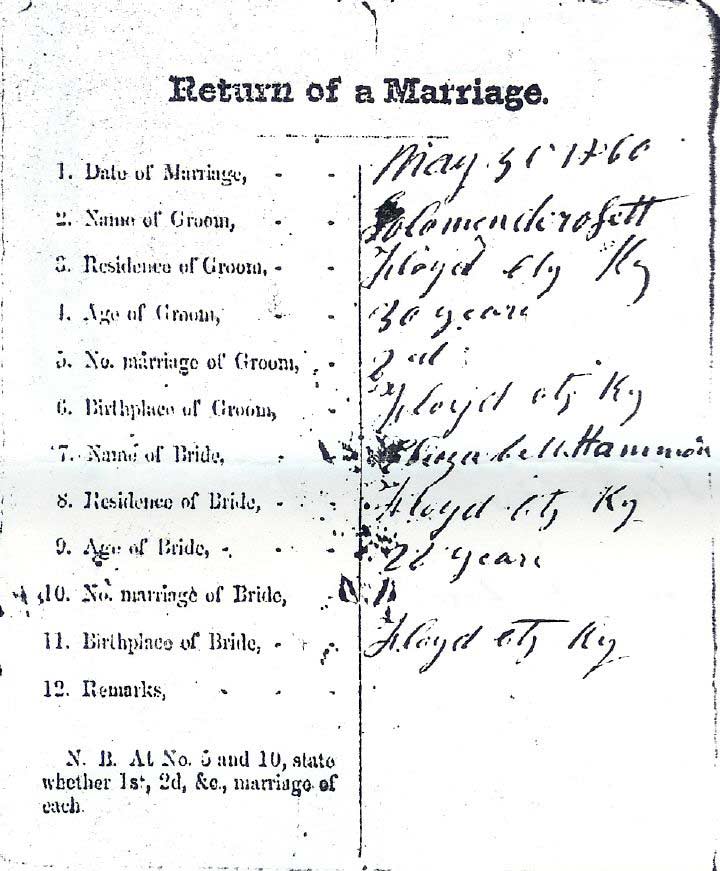 Return of a Marriage.
1. Date of Marriage, - - May 31 1860
2. Name of Groom, - - Solomon derosett
3. Residence of Groom, - - Floyd cty Ky
4. Age of Groom, - - 30 years
5. No. marriage of Groom, - 2d
6. Birthplace of Groom, - Floyd cty Ky
7. Name of Bride, - - Elizabeth Hammon
8. Residence of Bride, - - Floyd cty Ky
9. Age of Bride, - - years
10. No. marriage of Bride, -
11. Birthplace of Bride, - - Floyd cty Ky
12. Remarks, - - -
N. B. At No. 5 and 10, state
whether 1st, 2d, &c., marriage of
each.